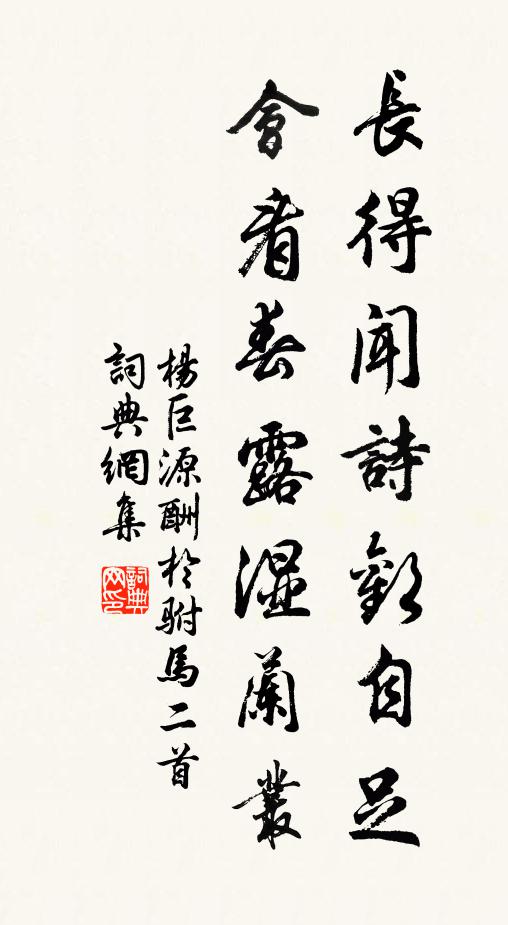 長得聞詩歡自足
會看春露湿蘭叢
楊巨源酬於駙馬二首
詞典網集
詞典
网印